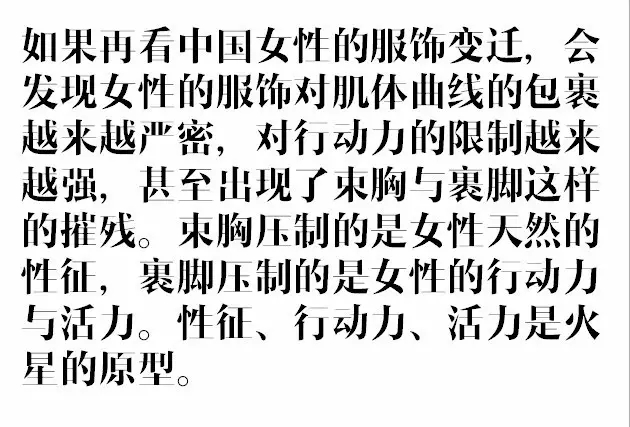 如果再看中国女性的服饰变迁，会
发现女性的服饰对肌体曲线的包裹
越来越严密，对行动力的限制越来
越强，甚至出现了束胸与裹脚这样
的摧残。束胸压制的是女性天然的
性征，裹脚压制的是女性的行动力
与活力。性征、行动力、活力是火
星的原型。